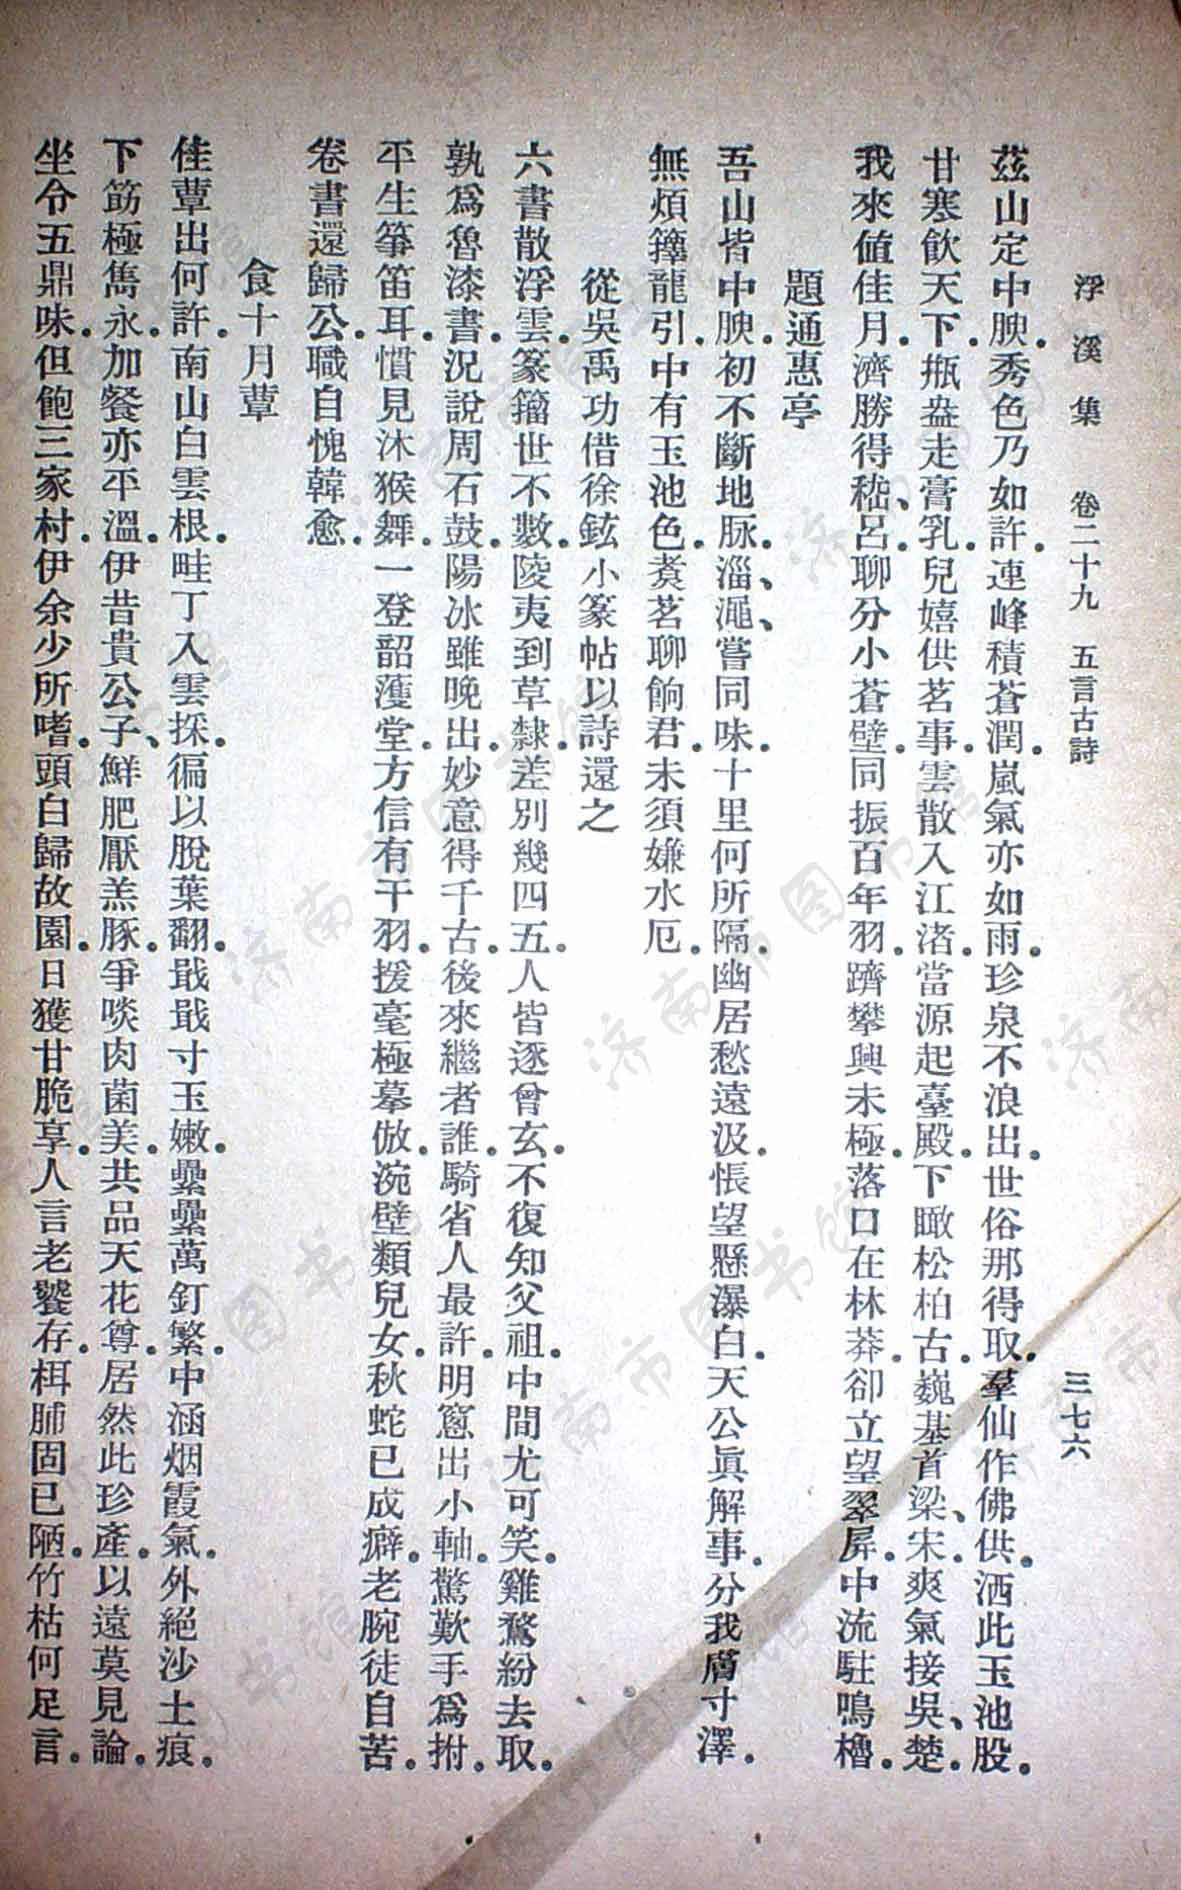 浮溪集 卷二十九 五言古詩 三七六
茲山定中腴。秀色乃如許。連峰積蒼潤。嵐氣亦如雨。珍泉不浪出。世俗那得取。羣仙作佛供。洒此玉池股。
甘寒飲天下。瓶盎走膏乳。兒嬉供茗事。雲散入江渚。當源起臺殿。下瞰松柏古。巍基首梁、宋。爽氣接吳、楚。
我來値佳月。濟勝得嵇、呂。聊分小蒼壁。同振百年羽。躋攀興未極。落日在林莽。卻立望翠屏。中流駐鳴櫓。
題通惠亭
吾山皆中腴。初不斷地脉。淄、澠嘗同味。十里何所隔。幽居愁遠汲。悵望懸瀑白。天公眞解事。分我膚寸澤。
無煩籜龍引。中有玉池色。煑茗聊餉君。未須嫌水厄。
從吳禹功借徐鉉小篆帖以詩還之
六書散浮雲。篆籀世不數。陵夷到草隸。差別幾四五。人皆逐曾玄。不復知父祖。中間尤可笑。雞鶩紛去取。
孰爲魯漆書。況說周石鼓。陽冰雖晚出。妙意得千古。後來繼者誰。騎省人最許。明窻出小軸。驚歎手爲拊。
平生箏笛耳。慣見沐猴舞。一登韶濩堂。方信有干羽。援毫極摹倣。涴壁類兒女。秋蛇已成癖。老腕徒自苦。
卷書還歸公。職自愧韓愈。
食十月蕈
佳蕈出何許。南山白雲根。畦丁入雲採。徧以脫葉翻。戢戢寸玉嫩。纍纍萬釘繁。中涵烟霞氣。外絕沙土痕。
下筯極雋永。加餐亦平溫。伊昔貴公子、鮮肥厭羔豚。爭啖肉菌美。共品天花尊。居然此珍產。以遠莫見論。
坐令五鼎味。但飽三家村。伊余少所嗜。頭白歸故園。日獲甘脆享。人言老饕存。栮脯固已陋。竹枯何足言。
济南市图书馆